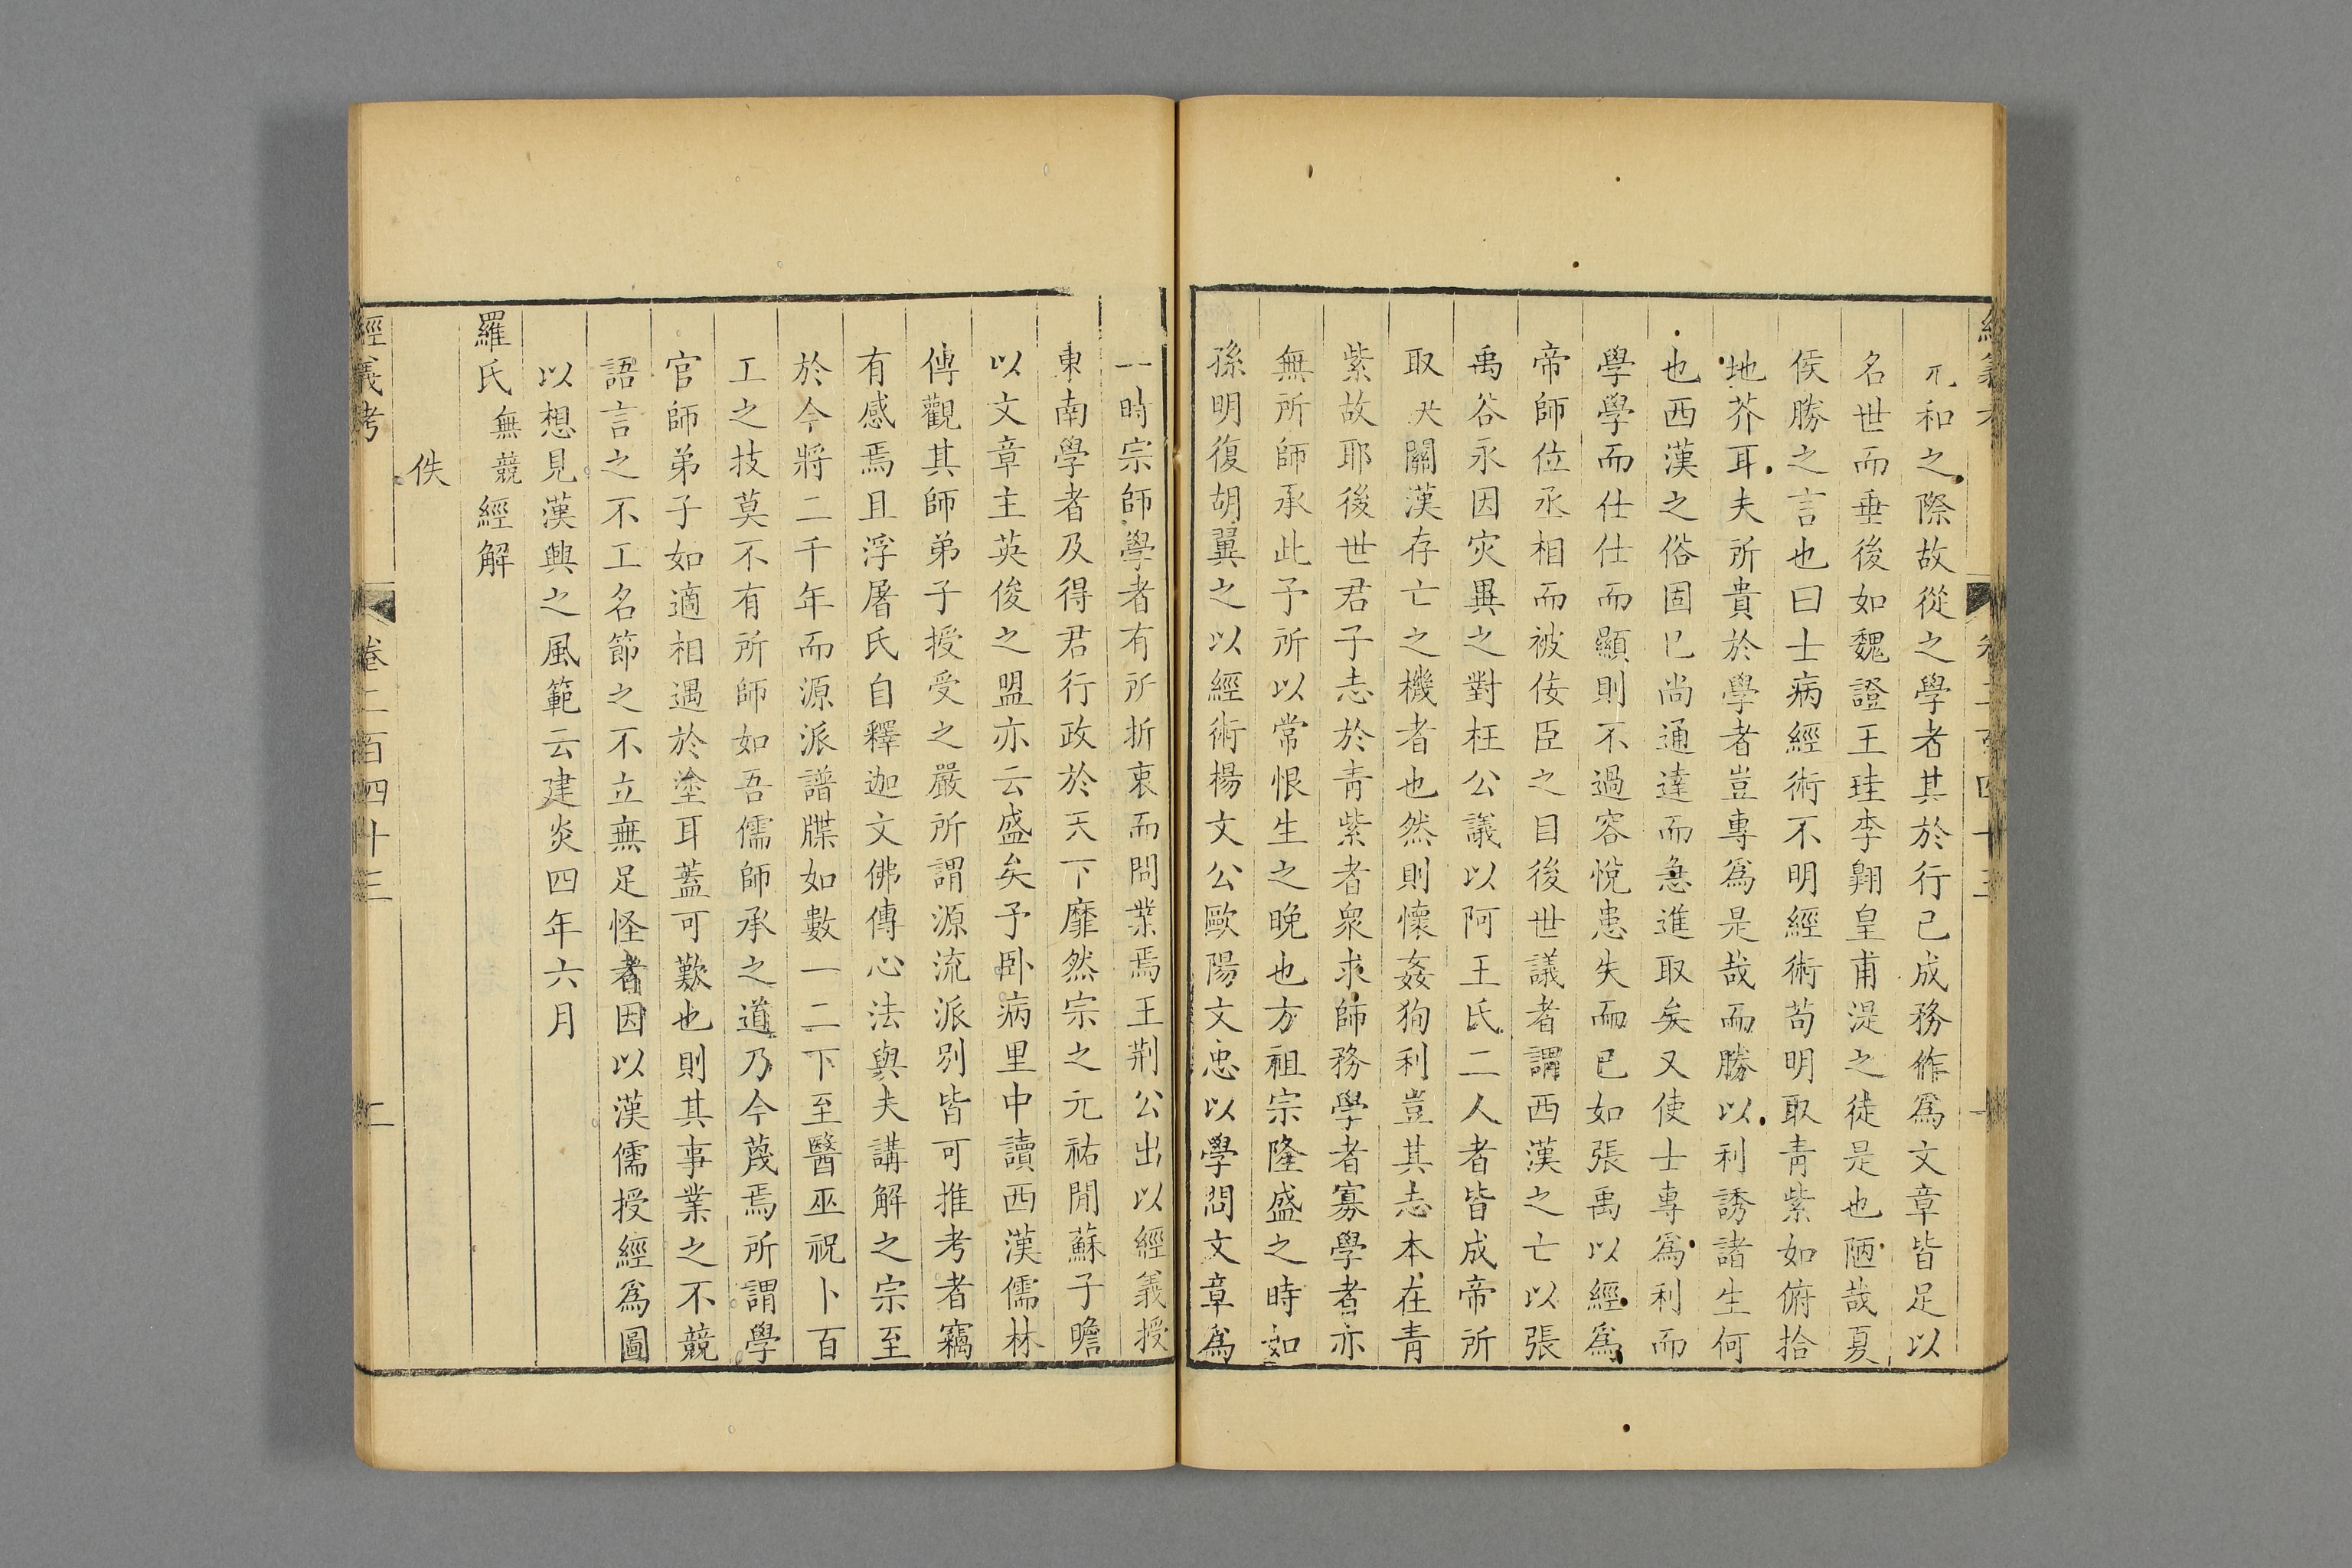 元和之際故從之學者其於行己成務作爲文章皆足以
名世而垂後如魏證王珪李翱皇甫湜之徒是也陋哉夏
侯勝之言也曰士病經術不明經術苟明取青紫如俯拾
地芥耳夫所貴於學者豈專爲是哉而勝以利誘諸生何
也西漢之俗固已尚通達而急進取矣又使士專爲利而
學學而仕仕而顯則不過容悅患失而已如張禹以經爲
帝師位丞相而被佞臣之目後世議者謂西漢之亡以張
禹谷永因灾異之對枉公議以阿王氏二人者皆成帝所
取決關漢存亡之機者也然則懷姦狥利豈其志本在青
紫故耶後世君子志於青紫者衆求師務學者寡學者亦
無所師承此予所以常恨生之晚也方祖宗隆盛之時如
孫明復胡翼之以經術楊文公歐陽文忠以學問文章爲
一時宗師學者有所折衷而問業焉王荆公出以經義授
東南學者及得君行政於天下靡然宗之元祐閒蘇子瞻
以文章主英俊之盟亦云盛矣予卧病里中讀西漢儒林
傳觀其師弟子授受之嚴所謂源流派别皆可推考者竊
有感焉且浮屠氏自釋迦文佛傳心法與夫講解之宗至
於今將二千年而源派譜牒如數一二下至醫巫祝卜百
工之技莫不有所師如吾儒師承之道乃今蔑焉所謂學
官師弟子如適相遇於塗耳蓋可歎也則其事業之不競
語言之不工名節之不立無足怪者因以漢儒授經爲圖
以想見漢興之風範云建炎四年六月
羅氏無競經解
佚
經義考 卷二百四十三 二